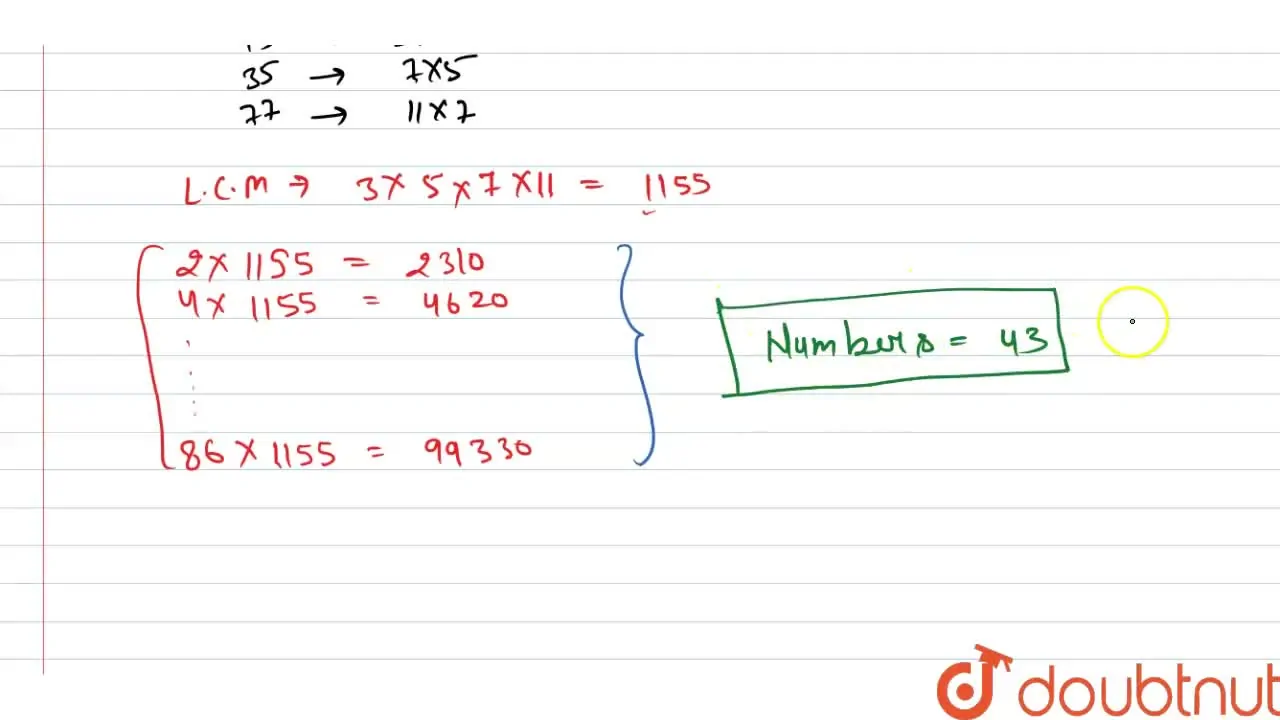 35 → 7×5
77 → 11×7
L.C.M → 3×5×7×11 = 1155
2×1155 = 2310
4×1155 = 4620
86×1155 = 99330
Numbers = 43
doubtnut